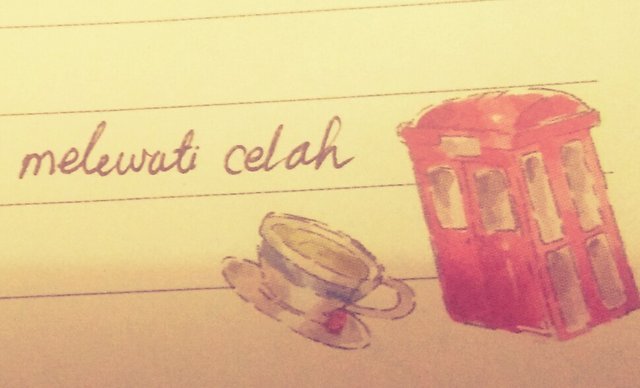 melewati celah